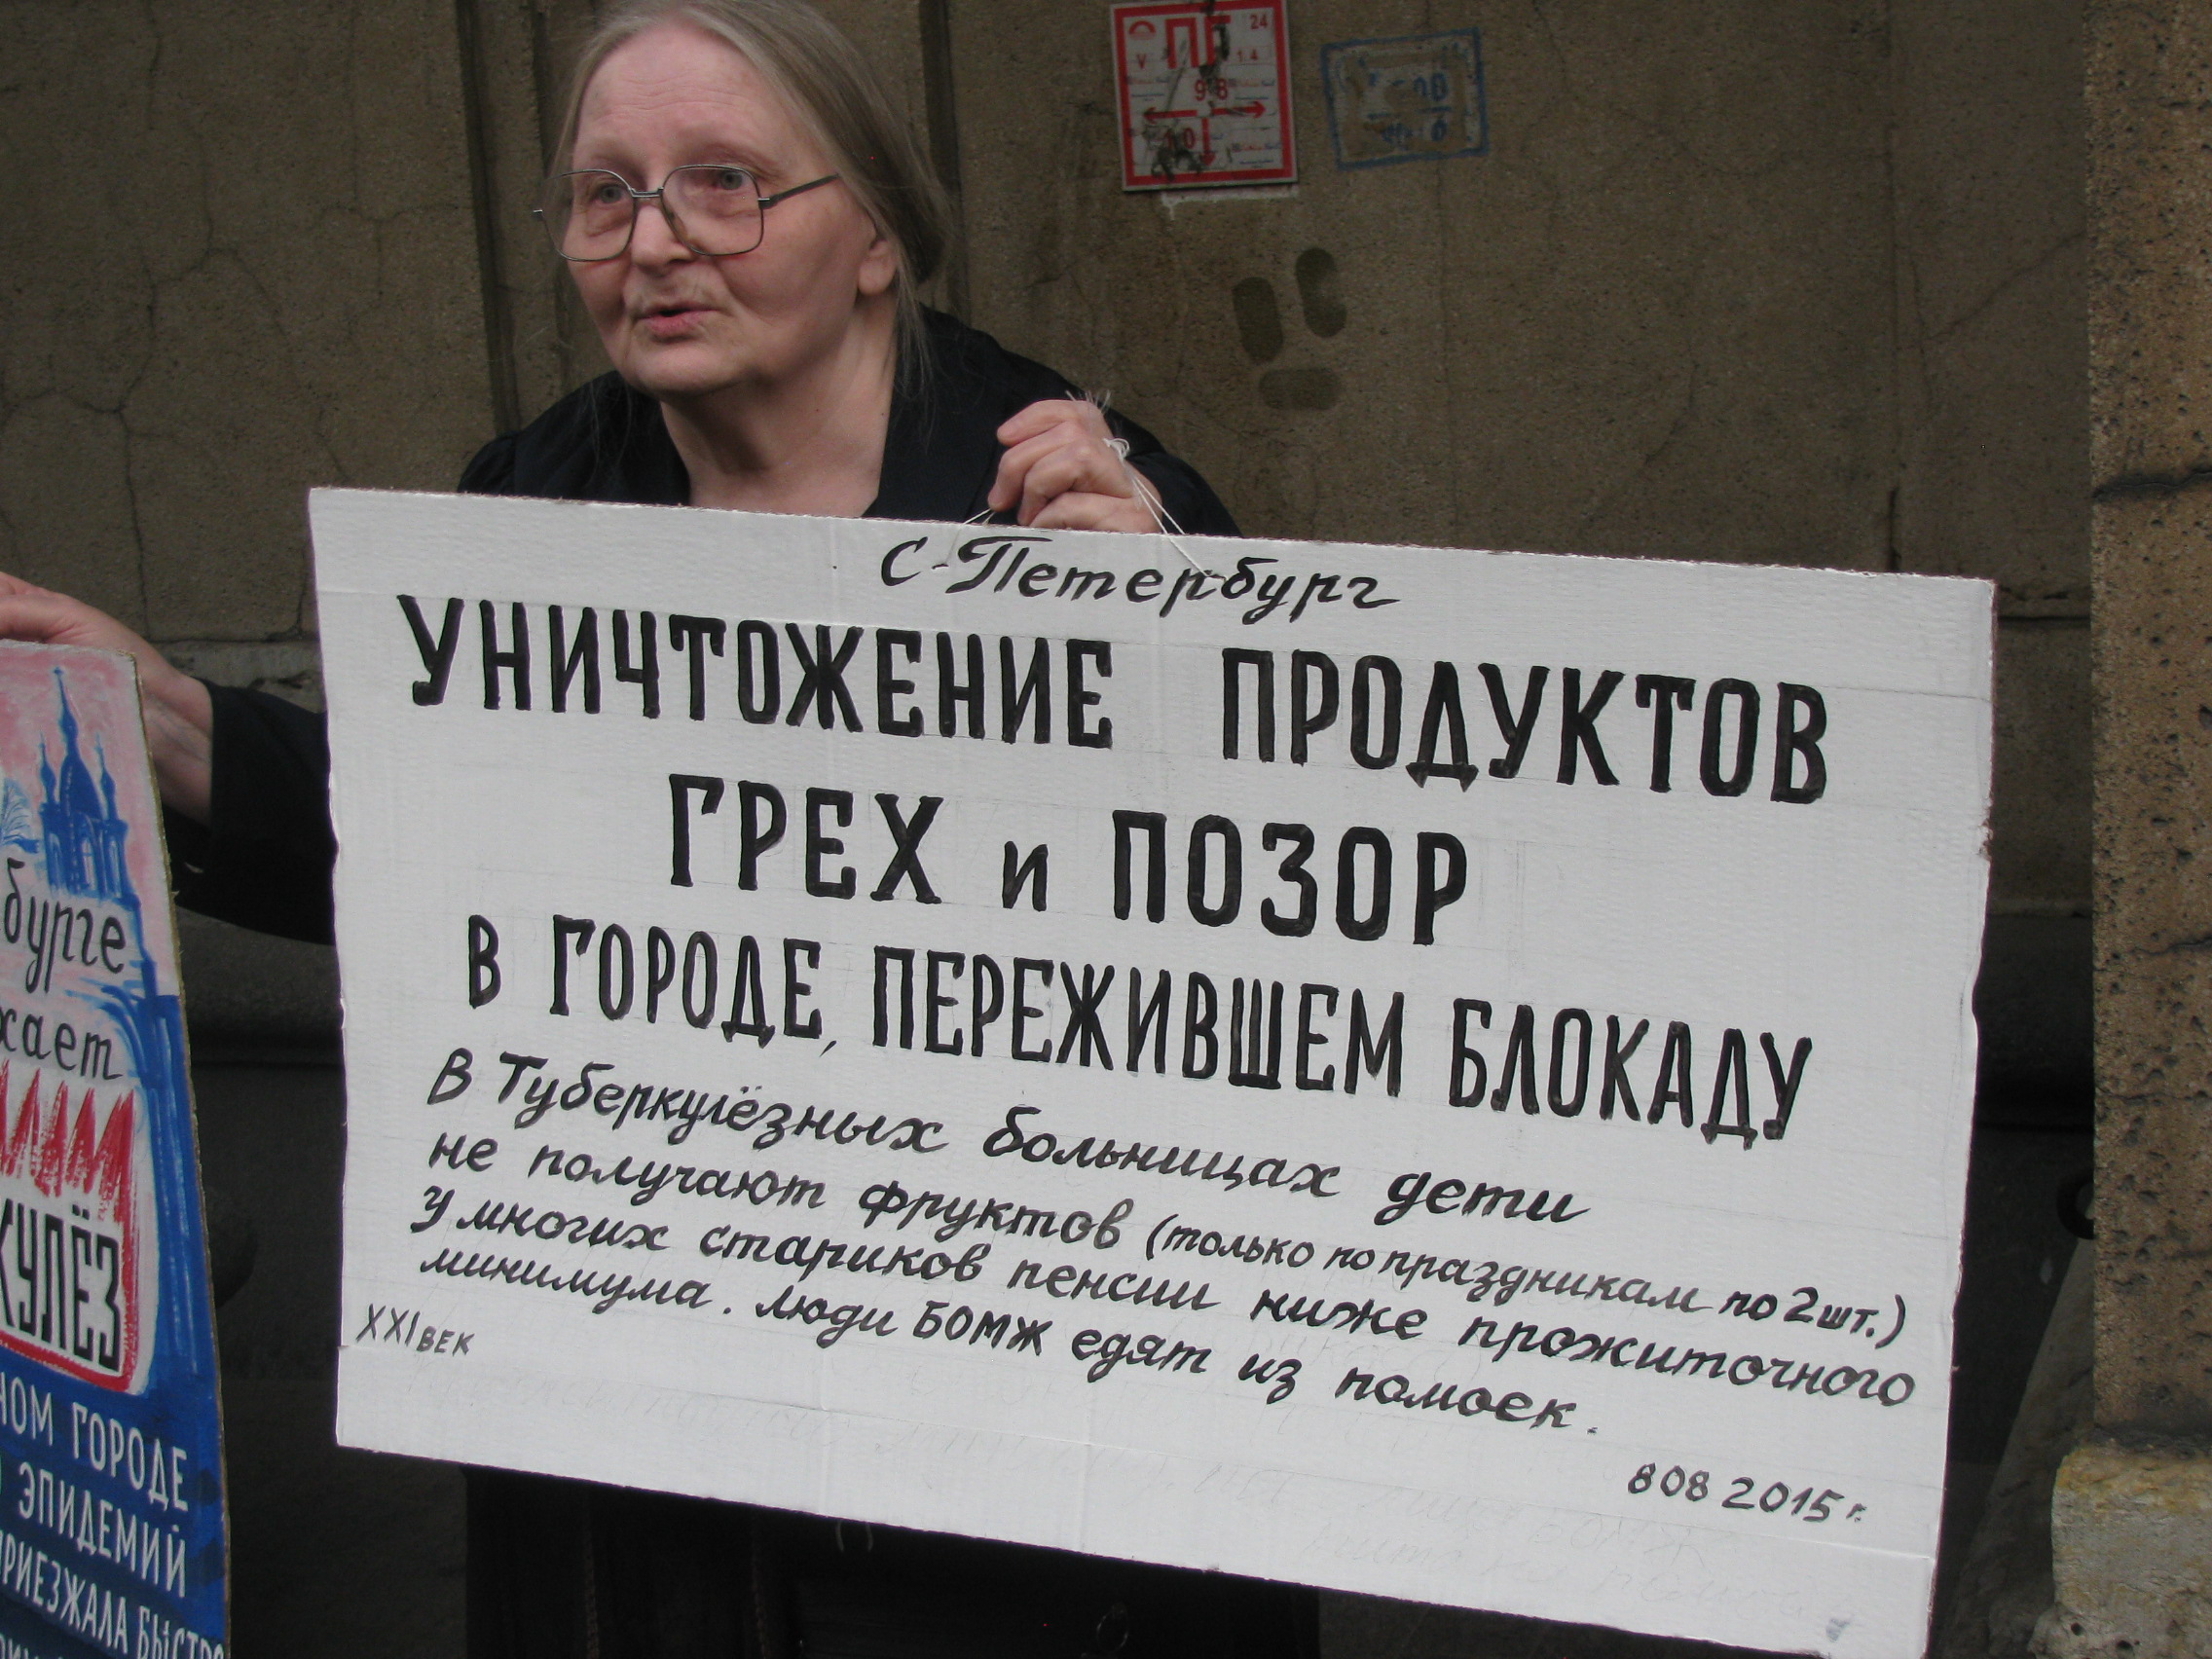 С-Петербург
УНИЧТОЖЕНИЕ ПРОДУКТОВ
ГРЕХ и ПОЗОР
В ГОРОДЕ, ПЕРЕЖИВШЕМ БЛОКАДУ
В Туберкулёзных больницах дети
не получают фруктов (только по праздникам по 2 шт.)
У многих стариков пенсии ниже прожиточного
минимума. Люди БОМЖ едят из помоек.
XXI ВЕК
8 08 2015 г.
бурге
жает
КУЛЁЗ
НОМ ГОРОДЕ
ЭПИДЕМИЙ
ПРИЕЗЖАЛА БЫСТРО
ПГ
24
V
14
98
10